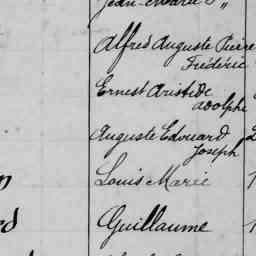 Jean-Marie J"
Alfred Auguste Pierre
Frédéric
Ernest Aristide
Adolphe
Auguste Edouard
Joseph
Louis Marie
Guillaume